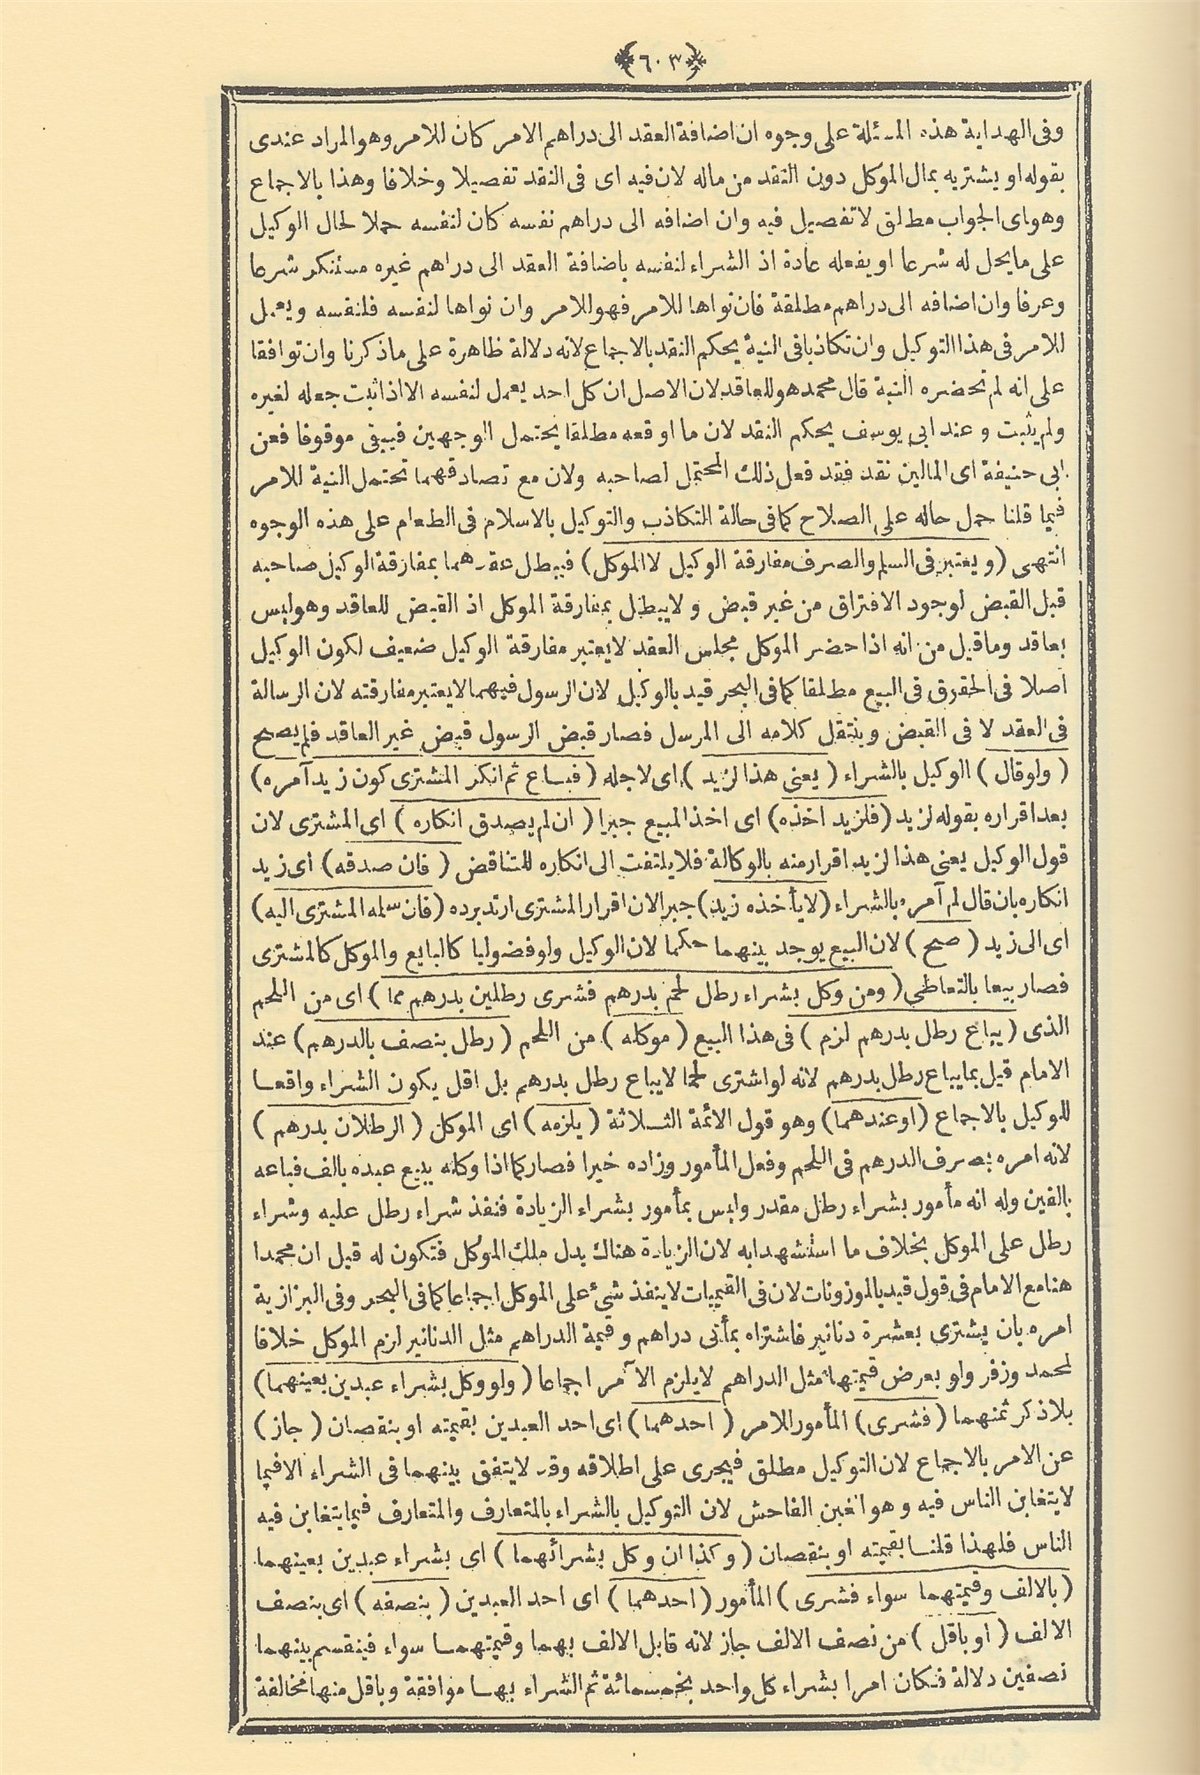 ﴿٦٠٣﴾
وفى الهداية هذه المسئلة على وجوه ان اضافة العقد الى دراهم الامر كان للامر وهو المراد عندى
بقوله او يشتريه بمال الموكل دون النقد من ماله لان فيه اى فى النقد تفصيلا وخلافا وهذا بالاجماع
وهو اى الجواب مطلق لا تفصيل فيه وان اضافه الى دراهم نفسه كان لنفسه حملا لحال الوكيل
على ما يحل له شرعا او يفعله عادة اذ الشراء لنفسه باضافة العقد الى دراهم غيره مستنكر شرعا
وعرفا وان اضافه الى دراهم مطلقة فان نواها للامر فهو للامر وان نواها لنفسه فلنفسه ويعمل
للامر فى هذا التوكيل وان تكاذبا فى النية يحكم النقد بالاجماع لانه دلالة ظاهرة على ما ذكرنا وان توافقا
على انه لم تحضره النية قال محمد هو للعاقد لان الاصل ان كل احد يعمل لنفسه الا اذا ثبت جعله لغيره
ولم يثبت وعند ابى يوسف يحكم النقد لان ما اوقعه مطلقا يحتمل الوجهين فيبقى موقوفا فعن
ابى حنيفة اى المالين نقد فقد فعل ذلك المحتمل لصاحبه ولان مع تصادقهما تحتمل النية للامر
فيما قلنا حمل حاله على الصلاح كما فى حالة التكاذب والتوكيل بالاسلام فى الطعام على هذه الوجوه
انتهى (ويعتبر فى السلم والصرف مفارقة الوكيل لا الموكل) فيبطل عقدهما بمفارقة الوكيل صاحبه
قبل القبض لوجود الافتراق من غير قبض ولا يبطل بمفارقة الموكل اذ القبض للعاقد وهو ليس
بعاقد وما قيل من انه اذا حضر الموكل مجلس العقد لا يعتبر مفارقة الوكيل ضعيف لكون الوكيل
اصلا فى الحقوق فى البيع مطلقا كما فى البحر قيد بالوكيل لان الرسول فيهما لا يعتبر مفارقته لان الرسالة
فى العقد لا فى القبض وينتقل كلامه الى المرسل فصار قبض الرسول قبض غير العاقد فلم يصح
(ولو قال) الوكيل بالشراء (يعنى هذا لزيد) اى لاجله (فباع ثم انكر المشترى كون زيد آمره)
بعد اقراره بقوله لزيد (فلزيد اخذه) اى اخذ المبيع جبرا (ان لم يصدق انكاره) اى المشترى لان
قول الوكيل يعنى هذا لزيد اقرار منه بالوكالة فلا يلتفت الى انكاره للتناقض (فان صدقه) اى زيد
انكاره بان قال لم آمره بالشراء (لا يأخذه زيد) جبرا لان اقرار المشترى ارتد برده (فان سلمه المشترى اليه)
اى الى زيد (صح) لان البيع يوجد بينهما حكما لان الوكيل ولو فضوليا كالبايع والموكل كالمشترى
فصار بيعا بالتعاطى (ومن وكل بشراء رطل لحم بدرهم فشرى رطلين بدرهم مما) اى من اللحم
الذى (يباع رطل بدرهم لزم) فى هذا البيع (موكله) من اللحم (رطل بنصف بالدرهم) عند
الامام قيل بما يباع رطل بدرهم لانه لو اشترى لحما لا يباع رطل بدرهم بل اقل يكون الشراء واقعا
للوكيل بالاجماع (او عندهما) وهو قول الائمة الثلاثة (يلزمه) اى الموكل (الرطلان بدرهم)
لانه امره بصرف الدرهم فى اللحم وفعل المأمور وزاده خيرا فصار كما اذا وكله ببيع عبده بالف فباعه
بالفين وله انه مأمور بشراء رطل مقدر وليس بمأمور بشراء الزيادة فنفذ شراء رطل عليه وشراء
رطل على الموكل بخلاف ما استشهدا به لان الزيادة هناك بدل ملك الموكل فتكون له قيل ان محمدا
هنا مع الامام فى قول قيد بالموزونات لان فى القيميات لا ينفذ شئ على الموكل اجماعا كما فى البحر وفى البزازية
امره بان يشترى بعشرة دنانير فاشتراه بمأتى دراهم وقيمة الدراهم مثل الدنانير لزم الموكل خلافا
لمحمد وزفر ولو بعرض قيمتها مثل الدراهم لا يلزم الآمر اجماعا (ولو وكل بشراء عبدين بعينهما)
بلا ذكر ثمنهما (فشرى) المأمور للامر (احدهما) اى احد العبدين بقيمته او بنقصان (جاز)
عن الامر بالاجماع لان التوكيل مطلق فيجرى على اطلاقه وقد لا يتفق بينهما فى الشراء الا فيما
لا يتغابن الناس فيه وهو الغبن الفاحش لان التوكيل بالشراء بالمتعارف والمتعارف فيما يتغابن فيه
الناس فلهذا قلنا بقيمته او بنقصان (وكذا ان وكل بشرائهما) اى بشراء عبدين بعينهما
(بالالف وقيمتهما سواء فشرى) المأمور (احدهما) اى احد العبدين (بنصفه) اى بنصف
الالف (او باقل) من نصف الالف جاز لانه قابل الالف بهما وقيمتهما سواء فينقسم بينهما
نصفين دلالة فكان امرا بشراء كل واحد بخمسمائة ثم الشراء بها موافقة وباقل منها مخالفة